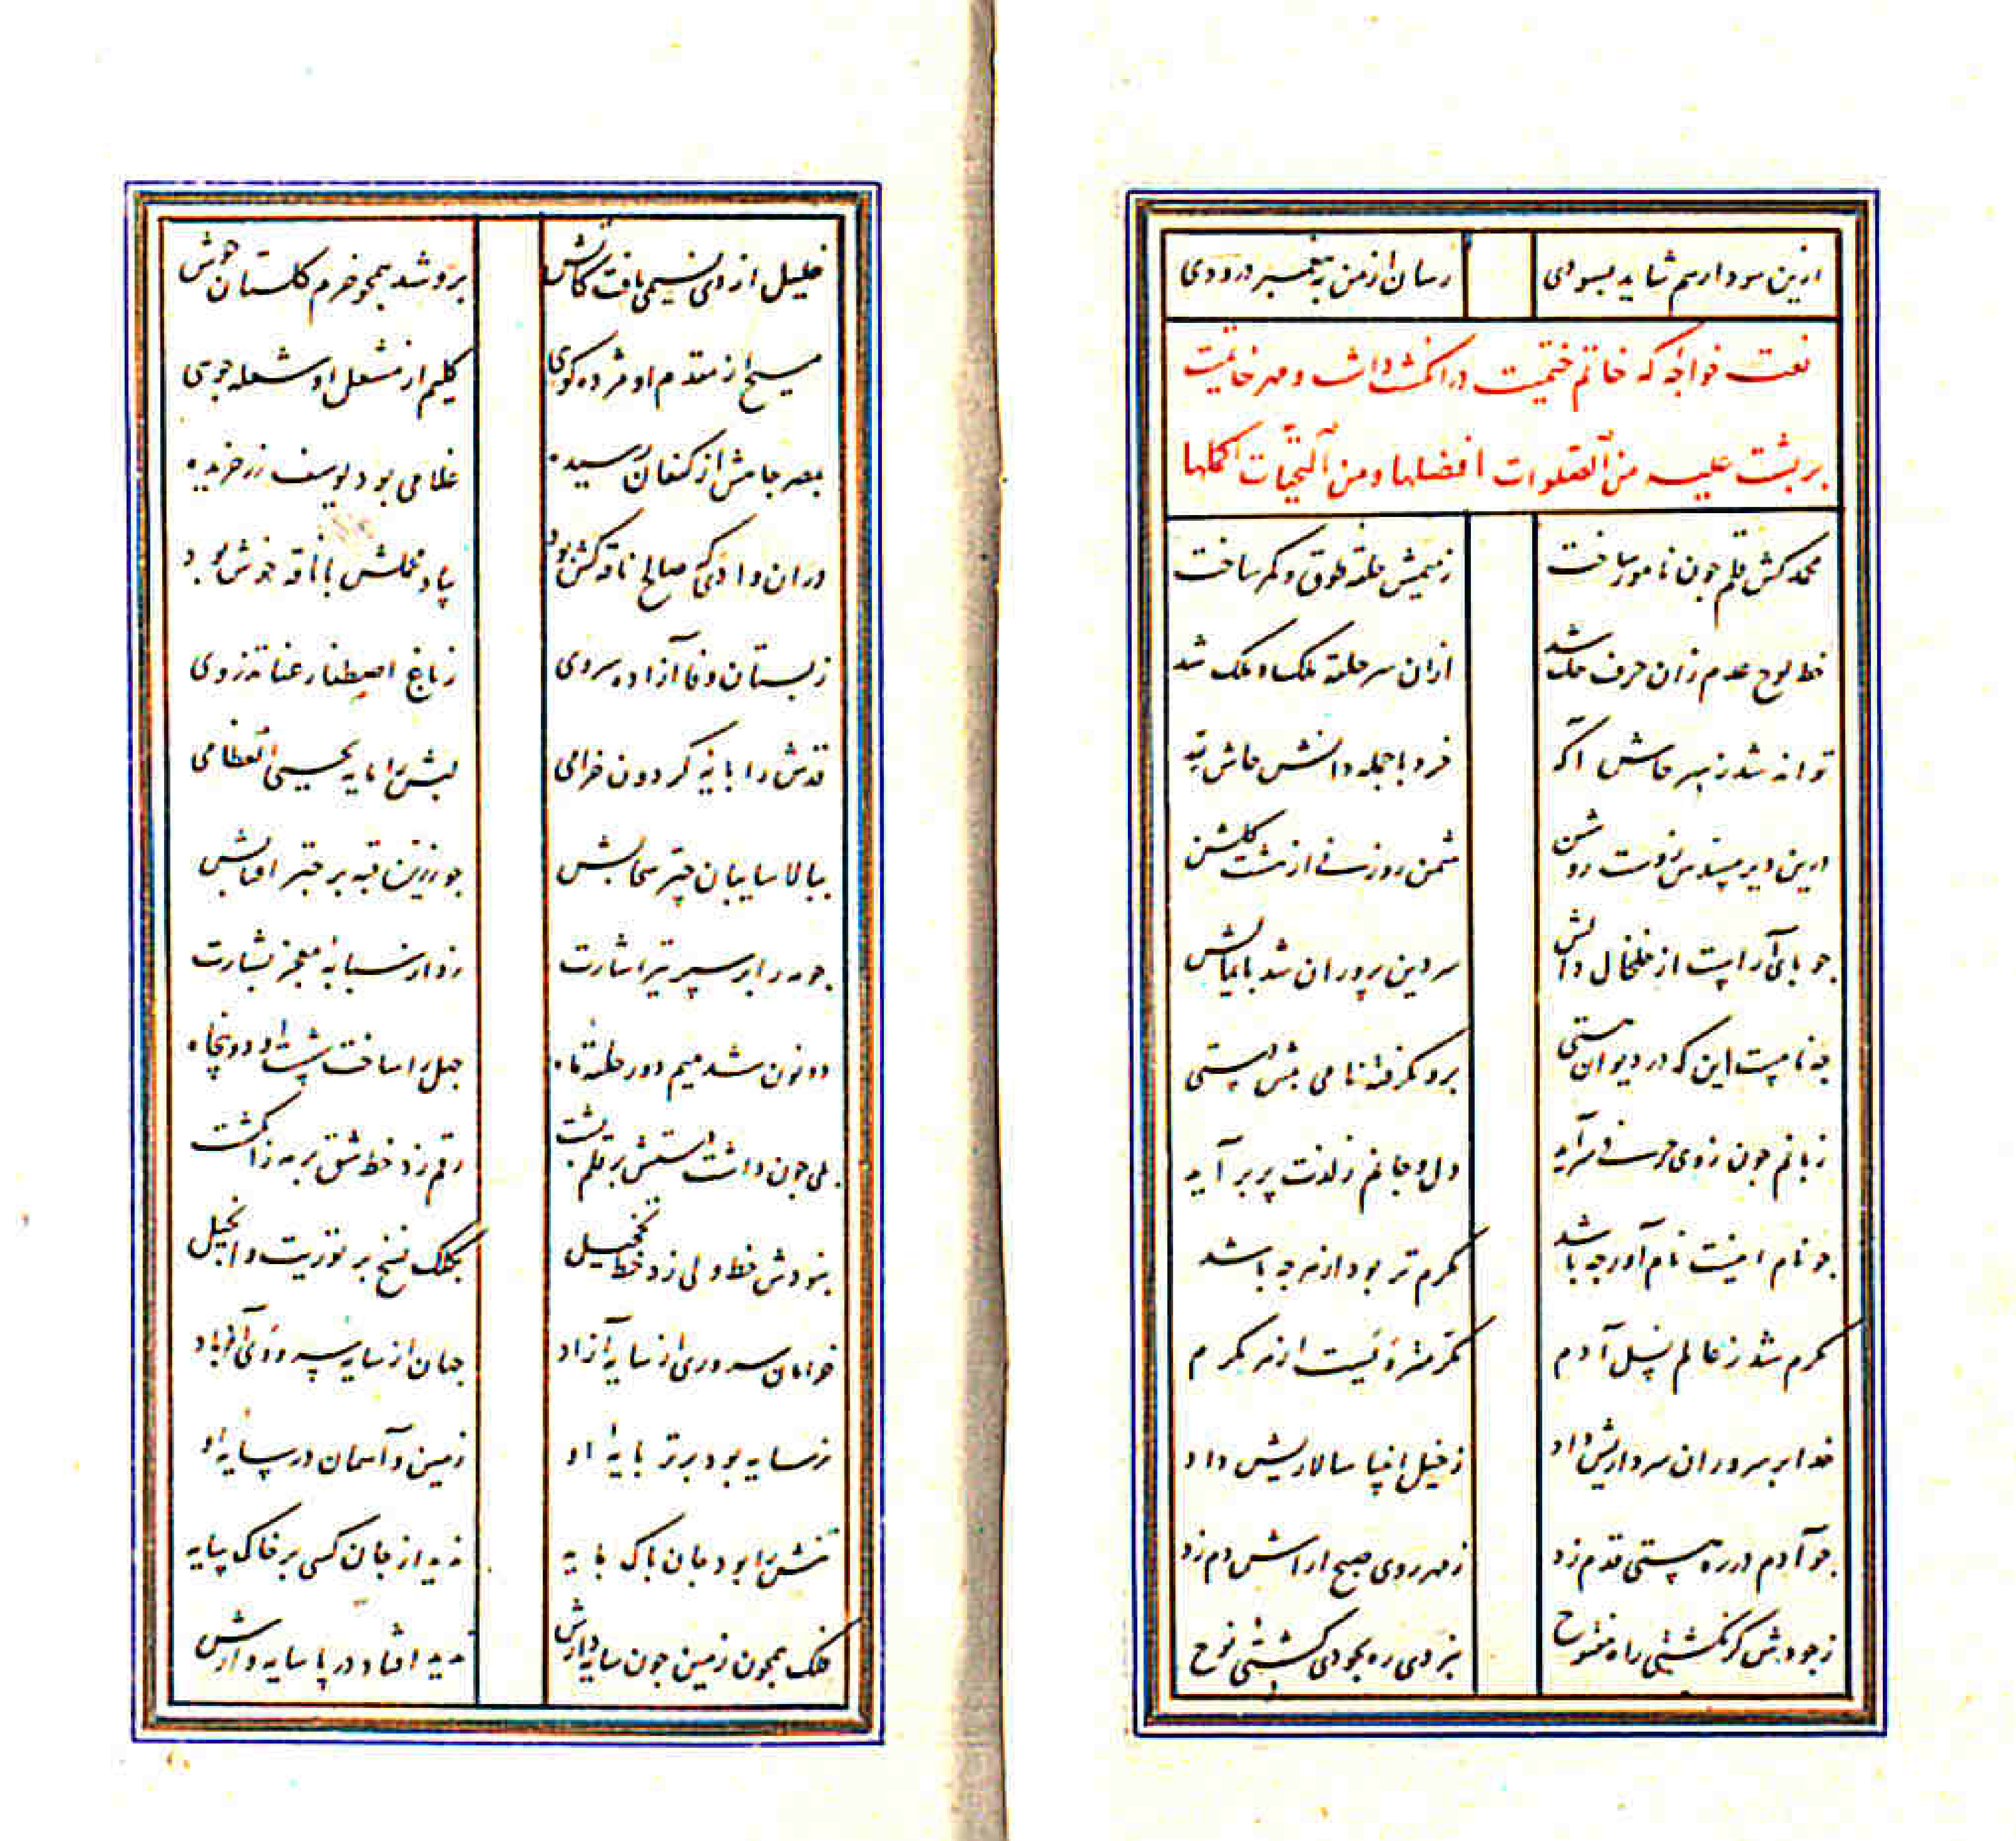 ازین سودا رسم شاید بسودی رسان از من به پیغمبر درودی
نعت خواجه که خاتم ختمیت در انگشت داشت و مهر خاتمیت
بر پشت علیه من الصلوات افضلها و من التحیات اکملها
محمد کش قلم جون نامور ساخت ز میمش حلقه طوق و کمر ساخت
خط لوح عدم زان حرف حک شد ازان سر حلقه ملک و ملک شد
تواند شد ز سر حاش آکه خرد با جمله دانش حاش لله
درین دیر مسدس زوست روشن مثمن روزنی از هشت کلشن
جو پای آراست از خلخال دالش سر دین پروران شد پایمالش
جه نامست این که در دیوان هستی برو نکرفته نامی پیش دستی
زبانم جون ز وی حرفی سراید دل و جانم ز لذت پر برآید
جو نام اینست نام آور جه باشد مکرم تر بود از هر جه باشد
مکرم شد ز عالم نسل آدم مکرمتر وی است از هر مکرم
خدا بر سروران سرداریش داد ز خیل انبیا سالاریش داد
جو آدم در ره هستی قدم زد ز مهر روی صبح آراش دم زد
ز جودش کر نکشتی راه مفتوح بجودی کی رسیدی کشتی نوح
خلیل از وی نسیمی یافت کاتش برو شد همجو خرم کلستان خوش
مسیح از مقدم او مژده کوی کلیم از مشعل او شعله جوی
بمصر جاهش از کنعان رسیده غلامی بود یوسف زر خریده
دران وادی که صالح ناقه کش بود بیاد محملش با ناقه خوش بود
ز بستان وفا آزاده سروی ز باغ اصطفا رعنا تذروی
قدش را پایه کردون خرامی لبش را مایه یحیی العظامی
ببالا سایبان چتر سحابش جو زرین قبه بر چتر آفتابش
جو مه را بر سپر تیر اشارت زد از سبابه معجز بشارت
دو نون شد میم دور حلقه ماه چهل را ساخت شست او دو پنجاه
بلی جون داشت دستش بر قلم پشت رقم زد خط شق بر مه ز انکشت
نبودش خط ولی زد خط تخجیل بکلک نسخ بر توریت و انجیل
خرامان سروری از سایه آزاد جهان از سایه سرو وی آباد
ز سایه بود برتر پایه او زمین و آسمان در سایه او
تنش را بود جان پاک مایه ندید از جان کسی بر خاک سایه
فلک همجون زمین جون سایه دارش ندید افتاد در پا سایه وارش